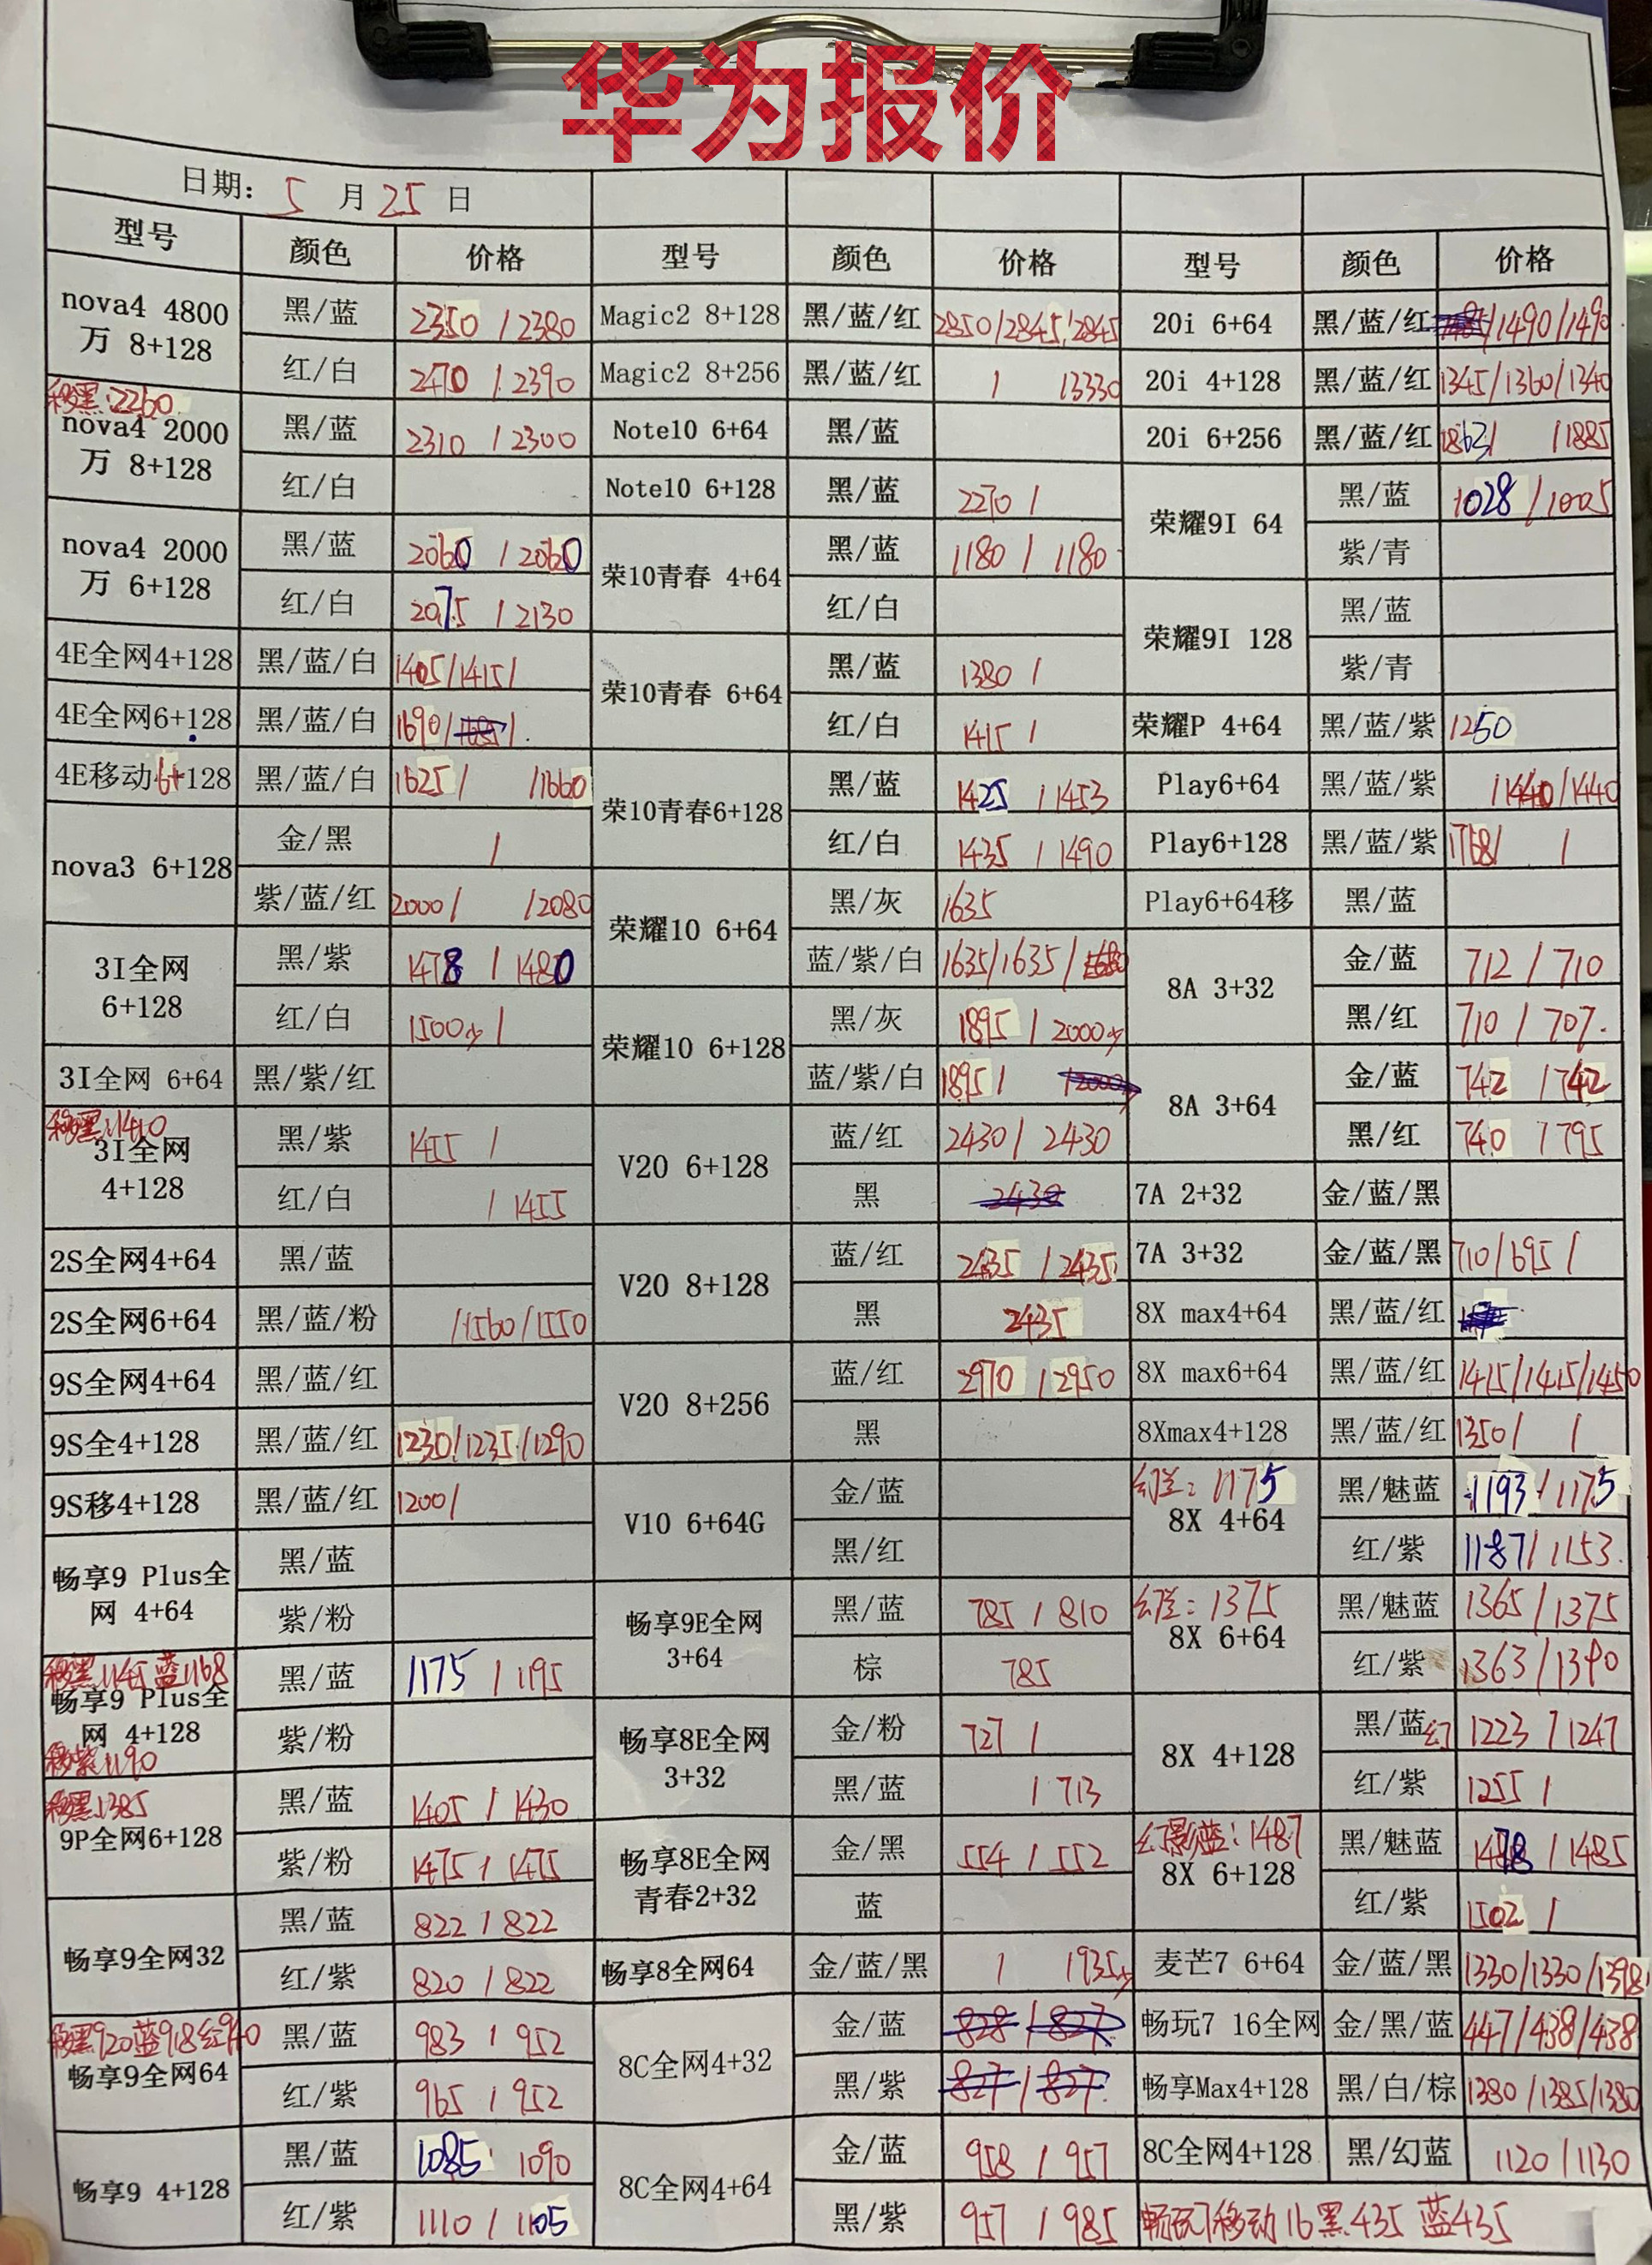 华为报价
日期: 5 月 25 日
型号 颜色 价格 型号 颜色 价格 型号 颜色 价格
nova4 4800万 8+128 黑/蓝 2350 / 2380 Magic2 8+128 黑/蓝/红 2850/2845/2845 20i 6+64 黑/蓝/红 /1490/1490
红/白 2470 / 2390 Magic2 8+256 黑/蓝/红 / /3330 20i 4+128 黑/蓝/红 1345/1360/1340
移黑:2260
nova4 2000万 8+128 黑/蓝 2310 / 2300 Note10 6+64 黑/蓝 20i 6+256 黑/蓝/红 1863/ /1885
红/白 Note10 6+128 黑/蓝 2270 / 荣耀9I 64 黑/蓝 1028 / 1005
nova4 2000万 6+128 黑/蓝 2060 / 2060 荣10青春 4+64 黑/蓝 1180 / 1180 紫/青
红/白 2075 / 2130 红/白 荣耀9I 128 黑/蓝
4E全网4+128 黑/蓝/白 1405/1415/ 荣10青春 6+64 黑/蓝 1380 / 紫/青
4E全网6+128 黑/蓝/白 1690/1685/ 红/白 1415 / 荣耀P 4+64 黑/蓝/紫 1250
4E移动6+128 黑/蓝/白 1625/ /1660 荣10青春6+128 黑/蓝 1425 / 1453 Play6+64 黑/蓝/紫 /1440/1440
nova3 6+128 金/黑 / 红/白 1435 / 1490 Play6+128 黑/蓝/紫 1768/ /
紫/蓝/红 2000/ /2080 荣耀10 6+64 黑/灰 1635 Play6+64移 黑/蓝
3I全网 6+128 黑/紫 1478 / 1480 蓝/紫/白 1635/1635/1680 8A 3+32 金/蓝 712 / 710
红/白 1500少 / 荣耀10 6+128 黑/灰 1895 / 2000少 黑/红 710 / 707.
3I全网 6+64 黑/紫/红 蓝/紫/白 1895/ /2000少 8A 3+64 金/蓝 742 / 742
移黑:1410
3I全网 4+128 黑/紫 1455 / V20 6+128 蓝/红 2430/ 2430 黑/红 740 / 795
红/白 / 1455 黑 2430 7A 2+32 金/蓝/黑
2S全网4+64 黑/蓝 V20 8+128 蓝/红 2435 / 2435 7A 3+32 金/蓝/黑 710/695/
2S全网6+64 黑/蓝/粉 /1560/1550 黑 2435 8X max4+64 黑/蓝/红
9S全网4+64 黑/蓝/红 V20 8+256 蓝/红 2970 / 2950 8X max6+64 黑/蓝/红 1415/1415/1450
9S全4+128 黑/蓝/红 1230/1235/1290 黑 8Xmax4+128 黑/蓝/红 1350/ /
9S移4+128 黑/蓝/红 1200/ V10 6+64G 金/蓝 幻兰: 1175 8X 4+64 黑/魅蓝 1193 / 1175
畅享9 Plus全网 4+64 黑/蓝 黑/红 红/紫 1187/ 1153.
紫/粉 畅享9E全网 3+64 黑/蓝 785 / 810 幻兰: 1375 8X 6+64 黑/魅蓝 1365 / 1375
移黑1145 蓝1168
畅享9 Plus全网 4+128 黑/蓝 1175 / 1195 棕 785 红/紫 1363/1390
移紫:1190 紫/粉 畅享8E全网 3+32 金/粉 727 / 8X 4+128 黑/蓝幻 1223 / 1247
移黑1385
9P全网6+128 黑/蓝 1405 / 1430 黑/蓝 / 713 红/紫 1255 /
紫/粉 1475 / 1475 畅享8E全网青春2+32 金/黑 554 / 552 幻影蓝: 1487 8X 6+128 黑/魅蓝 1478 / 1485
畅享9全网32 黑/蓝 822 / 822 蓝 红/紫 1502 /
红/紫 820 / 822 畅享8全网64 金/蓝/黑 / 1935少 麦芒7 6+64 金/蓝/黑 1330/1330/1398
移黑920蓝918红940
畅享9全网64 黑/蓝 983 / 952 8C全网4+32 金/蓝 828 / 827 畅玩7 16全网 金/黑/蓝 447/438/438
红/紫 965 / 952 黑/紫 827 / 827 畅享Max4+128 黑/白/棕 1380/1385/1380
畅享9 4+128 黑/蓝 1085 1090 8C全网4+64 金/蓝 958 / 957 8C全网4+128 黑/幻蓝 1120 / 1130
红/紫 1110 / 1105 黑/紫 957 / 985 畅玩7移动16黑435 蓝435